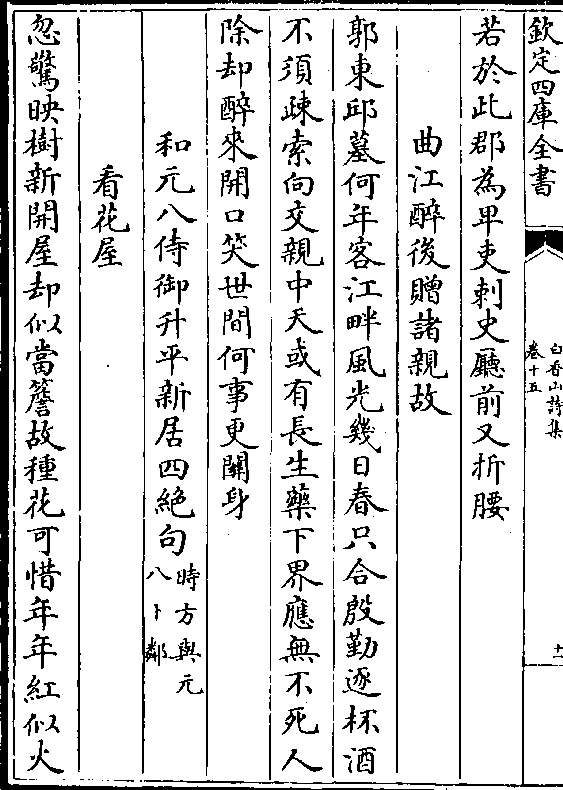 欽定四庫全書
白香山詩集
卷十五
十一
若於此郡為卑吏刺史廳前又折腰
曲江醉後贈諸親故
郭東邱墓何年客江畔風光幾日春只合殷勤逐杯酒
不須疎索向交親中天或有長生藥下界應無不死人
除却醉來開口笑世間何事更關身
和元八侍御升平新居四絶句時方與元八卜鄰
看花屋
忽驚映樹新開屋却似當簷故種花可惜年年紅似火